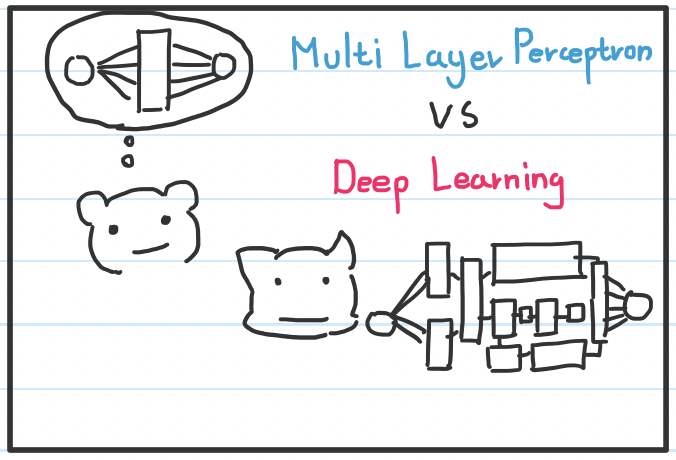 Multi Layer Perceptron
VS
Deep Learning